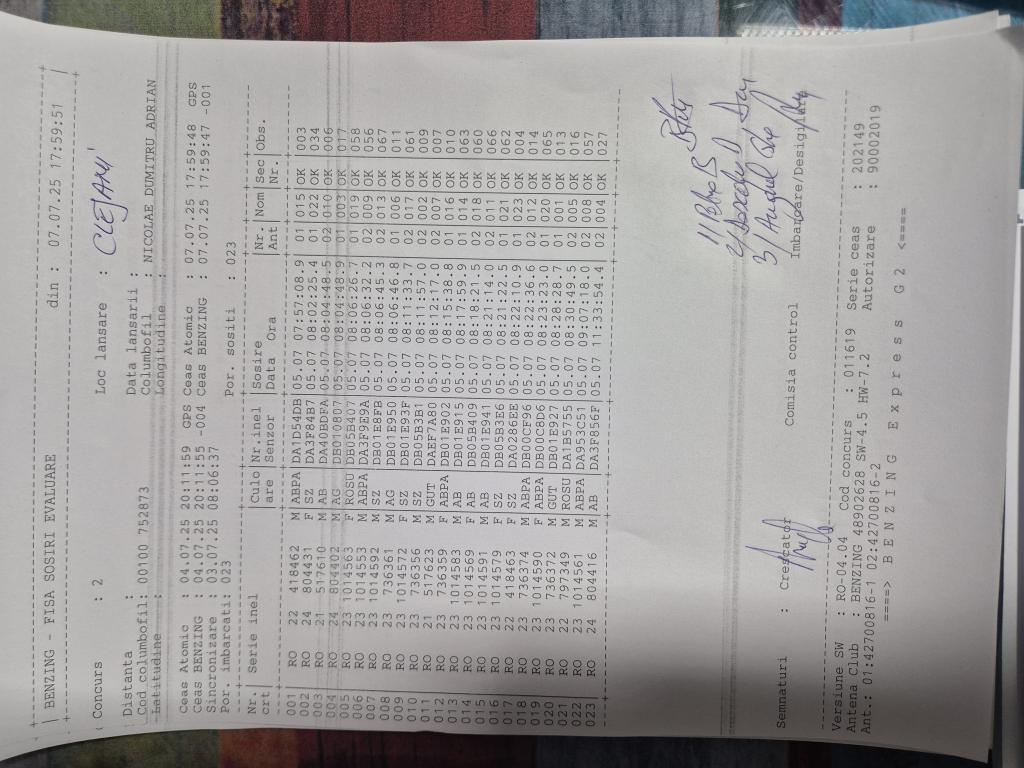 BENZING - FISA SOSIRI EVALUARE din : 07.07.25 17:59:51
Concurs : 2 Loc lansare : CLEJANI
Distanta : Data lansarii :
Cod columbofil: 00100 752873 Columbofil : NICOLAE DUMITRU ADRIAN
Latitudine : Longitudine :
Ceas Atomic : 04.07.25 20:11:59 GPS Ceas Atomic : 07.07.25 17:59:48 GPS
Ceas BENZING : 04.07.25 20:11:55 -004 Ceas BENZING : 07.07.25 17:59:47 -001
Sincronizare : 03.07.25 08:06:37
Por. imbarcati: 023 Por. sositi : 023
Nr. | Serie inel |Culo |Nr.inel |Sosire |Nr. |Nom |Sec |Obs.
crt | |are |Senzor |Data Ora |Ant | |Nr. |
001 RO 22 418462 M ABPA DA1D54DB 05.07 07:57:08.9 01 015 OK 003
002 RO 24 804431 F SZ DA3F84B7 05.07 08:02:25.4 01 022 OK 034
003 RO 21 517610 M AB DA40BDFA 05.07 08:04:48.5 02 010 OK 006
004 RO 24 804402 M AG DB010807 05.07 08:04:48.9 01 003 OK 017
005 RO 23 1014563 F ROSU DB05B407 05.07 08:06:26.7 01 019 OK 058
006 RO 23 1014553 M ABPA DA3F9E9A 05.07 08:06:32.2 02 009 OK 056
007 RO 23 1014592 M SZ DB01E8FB 05.07 08:06:45.3 02 013 OK 067
008 RO 23 736361 M AG DB01E950 05.07 08:06:46.8 01 006 OK 011
009 RO 23 1014572 F SZ DB01E93F 05.07 08:11:33.7 02 017 OK 061
010 RO 23 736356 M SZ DB05B3B1 05.07 08:11:57.0 02 002 OK 009
011 RO 21 517623 M GUT DAEF7A80 05.07 08:12:17.3 02 007 OK 007
012 RO 23 736359 F ABPA DB01E902 05.07 08:15:38.8 01 016 OK 010
013 RO 23 1014583 M AB DB01E915 05.07 08:17:59.9 01 014 OK 063
014 RO 23 1014569 F AB DB05B409 05.07 08:18:21.5 02 018 OK 060
015 RO 23 1014591 M AB DB01E941 05.07 08:21:14.0 02 011 OK 066
016 RO 23 1014579 F SZ DB05B3E6 05.07 08:21:22.5 01 021 OK 062
017 RO 22 418463 F SZ DA0286EE 05.07 08:22:10.9 01 023 OK 004
018 RO 23 736374 M ABPA DB00CF96 05.07 08:22:36.6 02 012 OK 014
019 RO 23 1014590 F ABPA DB00C8D6 05.07 08:23:23.0 01 020 OK 065
020 RO 23 736372 M GUT DB01E927 05.07 08:28:28.7 01 001 OK 013
021 RO 22 797349 M ROSU DA1B5755 05.07 08:30:49.5 02 005 OK 016
022 RO 23 1014561 M ABPA DA953C51 05.07 09:07:18.0 02 008 OK 057
023 RO 24 804416 M AB DA3F856F 05.07 11:33:54.4 02 004 OK 027
Semnaturi : Crescator Comisia control Imbarcare/Desigilare
Versiune SW : RO-04.04 Cod concurs : 011619 Serie ceas : 202149
Antena Club : BENZING 48902628 SW-4.5 HW-7.2 Autorizare : 90002019
Ant.: 01:42700816-1 02:42700816-2
====> B E N Z I N G E x p r e s s G 2 <====